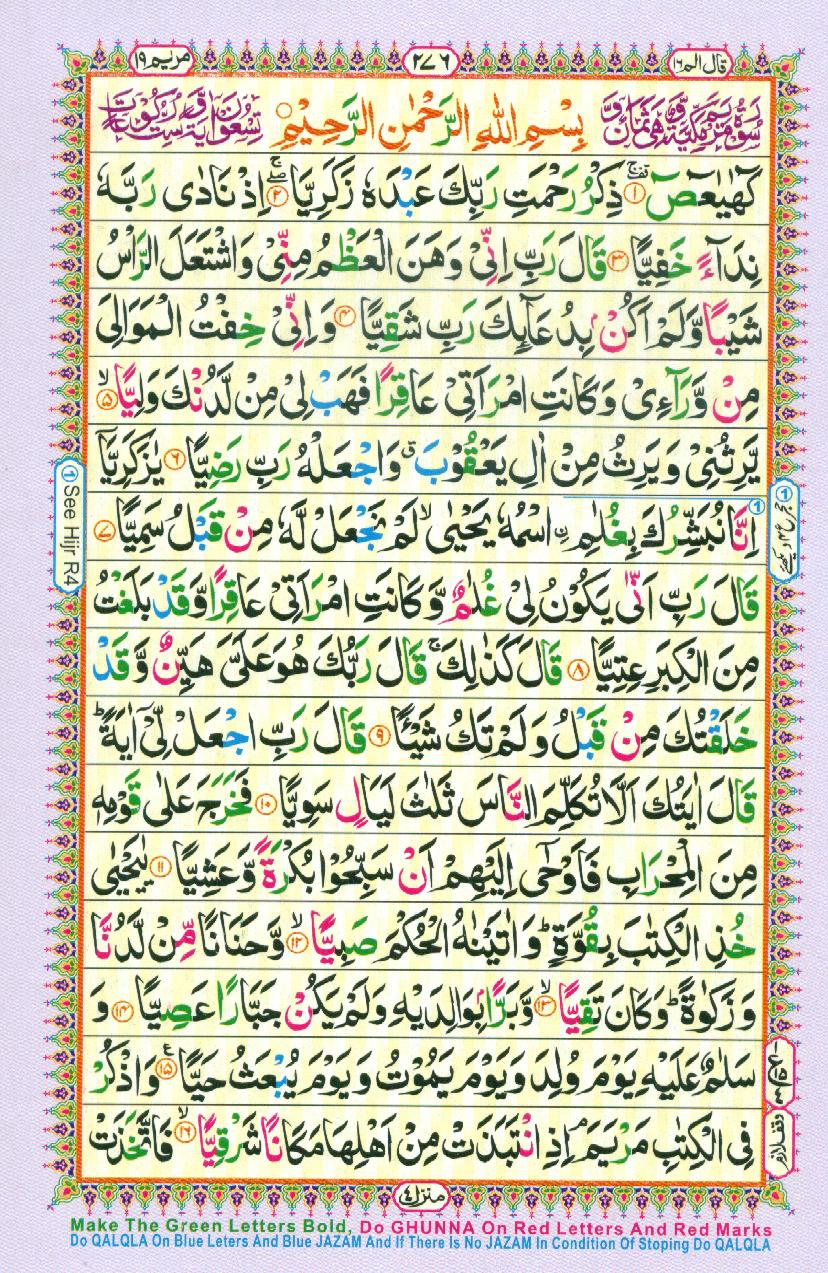 قال الم ۱۶ ۲۷۶ مریم ۱۹
بِسْمِ اللهِ الرَّحْمٰنِ الرَّحِيْمِ
كٓهٰيٰعٓصٓ ۱ ذِكْرُ رَحْمَتِ رَبِّكَ عَبْدَهٗ زَكَرِيَّا ۲ اِذْ نَادٰى رَبَّهٗ
نِدَآءً خَفِيًّا ۳ قَالَ رَبِّ اِنِّيْ وَهَنَ الْعَظْمُ مِنِّيْ وَاشْتَعَلَ الرَّاْسُ
شَيْبًا وَّلَمْ اَكُنْۢ بِدُعَآئِكَ رَبِّ شَقِيًّا ۴ وَاِنِّيْ خِفْتُ الْمَوَالِيَ
مِنْ وَّرَآءِيْ وَكَانَتِ امْرَاَتِيْ عَاقِرًا فَهَبْ لِيْ مِنْ لَّدُنْكَ وَلِيًّا ۵
يَّرِثُنِيْ وَيَرِثُ مِنْ اٰلِ يَعْقُوْبَ وَاجْعَلْهُ رَبِّ رَضِيًّا ۶ يٰزَكَرِيَّآ
اِنَّا نُبَشِّرُكَ بِغُلٰمِ ۨاسْمُهٗ يَحْيٰى لَمْ نَجْعَلْ لَّهٗ مِنْ قَبْلُ سَمِيًّا ۷
قَالَ رَبِّ اَنّٰى يَكُوْنُ لِيْ غُلٰمٌ وَّكَانَتِ امْرَاَتِيْ عَاقِرًا وَّقَدْ بَلَغْتُ
مِنَ الْكِبَرِ عِتِيًّا ۸ قَالَ كَذٰلِكَ قَالَ رَبُّكَ هُوَ عَلَيَّ هَيِّنٌ وَّقَدْ
خَلَقْتُكَ مِنْ قَبْلُ وَلَمْ تَكُ شَيْـًٔا ۹ قَالَ رَبِّ اجْعَلْ لِّيْٓ اٰيَةً
قَالَ اٰيَتُكَ اَلَّا تُكَلِّمَ النَّاسَ ثَلٰثَ لَيَالٍ سَوِيًّا ۱۰ فَخَرَجَ عَلٰى قَوْمِهٖ
مِنَ الْمِحْرَابِ فَاَوْحٰٓى اِلَيْهِمْ اَنْ سَبِّحُوْا بُكْرَةً وَّعَشِيًّا ۱۱ يٰيَحْيٰى
خُذِ الْكِتٰبَ بِقُوَّةٍ وَاٰتَيْنٰهُ الْحُكْمَ صَبِيًّا ۱۲ وَّحَنَانًا مِّنْ لَّدُنَّا
وَزَكٰوةً وَكَانَ تَقِيًّا ۱۳ وَّبَرًّۢا بِوَالِدَيْهِ وَلَمْ يَكُنْ جَبَّارًا عَصِيًّا ۱۴ وَ
سَلٰمٌ عَلَيْهِ يَوْمَ وُلِدَ وَيَوْمَ يَمُوْتُ وَيَوْمَ يُبْعَثُ حَيًّا ۱۵ وَاذْكُرْ
فِي الْكِتٰبِ مَرْيَمَ اِذِ انْتَبَذَتْ مِنْ اَهْلِهَا مَكَانًا شَرْقِيًّا ۱۶ فَاتَّخَذَتْ
منزل ۴
① See Hijr R4
Make The Green Letters Bold, Do GHUNNA On Red Letters And Red Marks
Do QALQLA On Blue Leters And Blue JAZAM And If There Is No JAZAM In Condition Of Stoping Do QALQLA